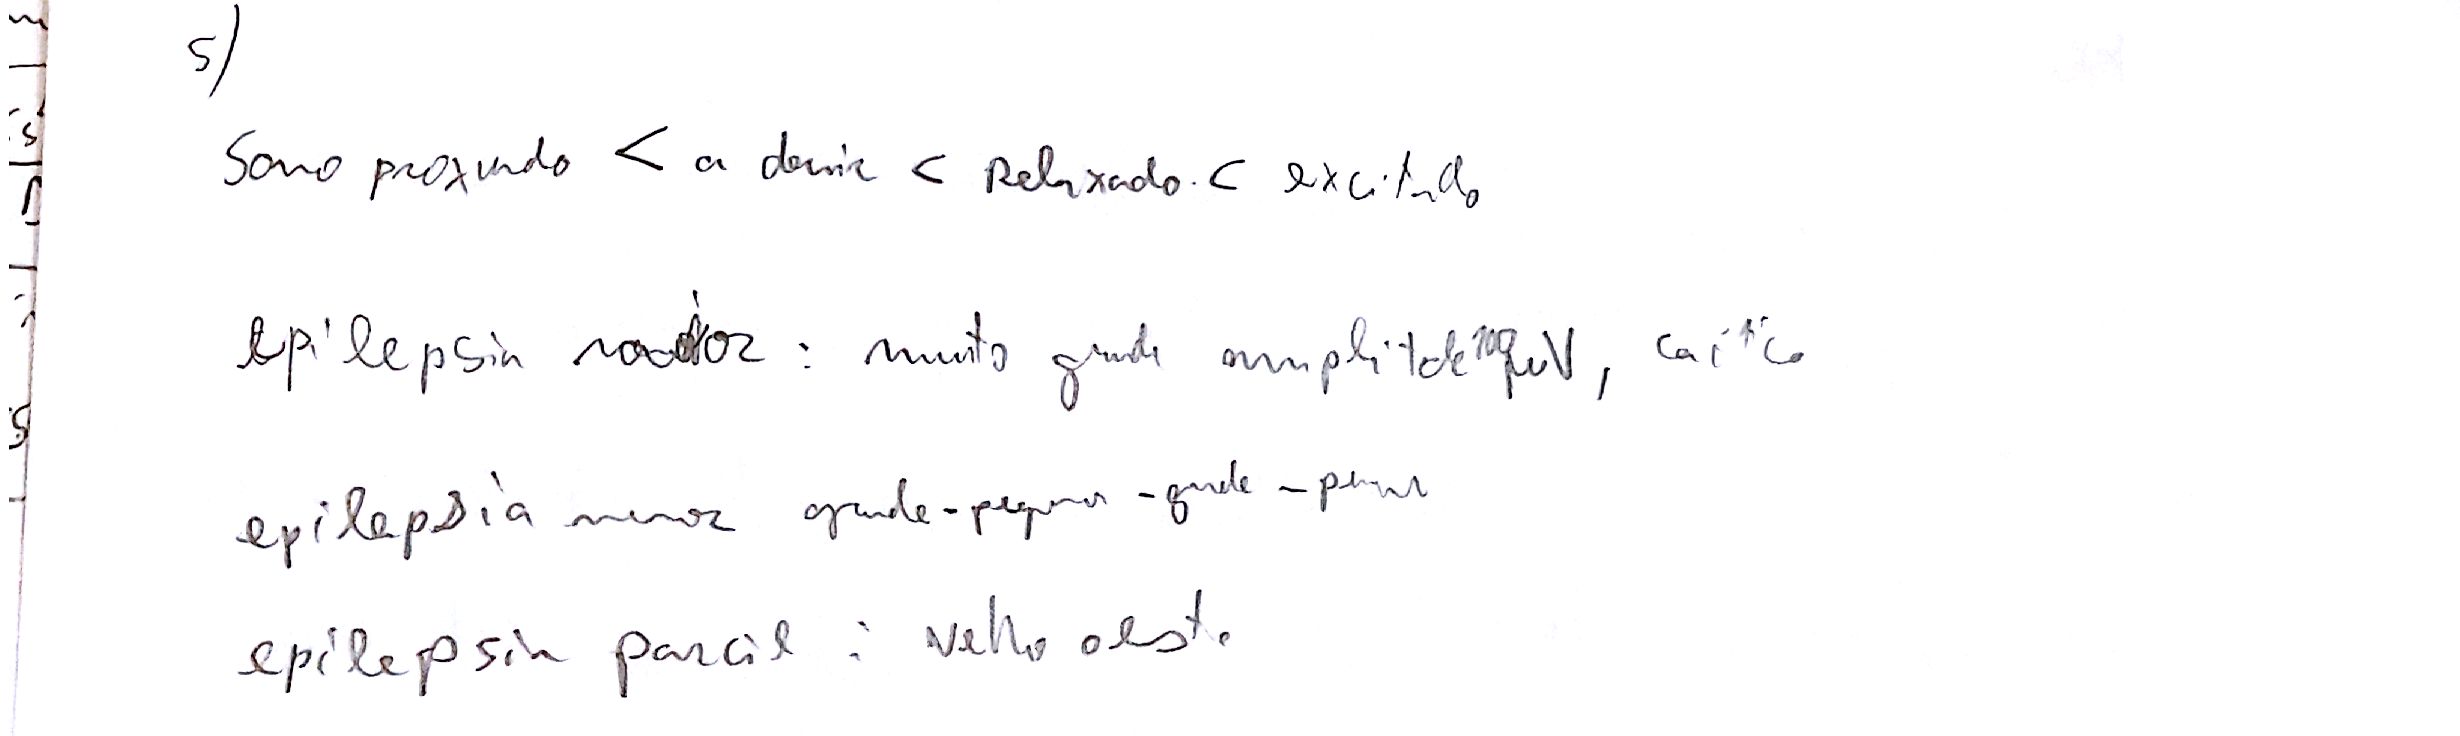 5)
Sono profundo < a dormir < Relaxado < excitado
epilepsia maior : muito grande amplitude 100µV, caótico
epilepsia menor grande-pequena-grande-pequena
epilepsia parcial : velho oeste